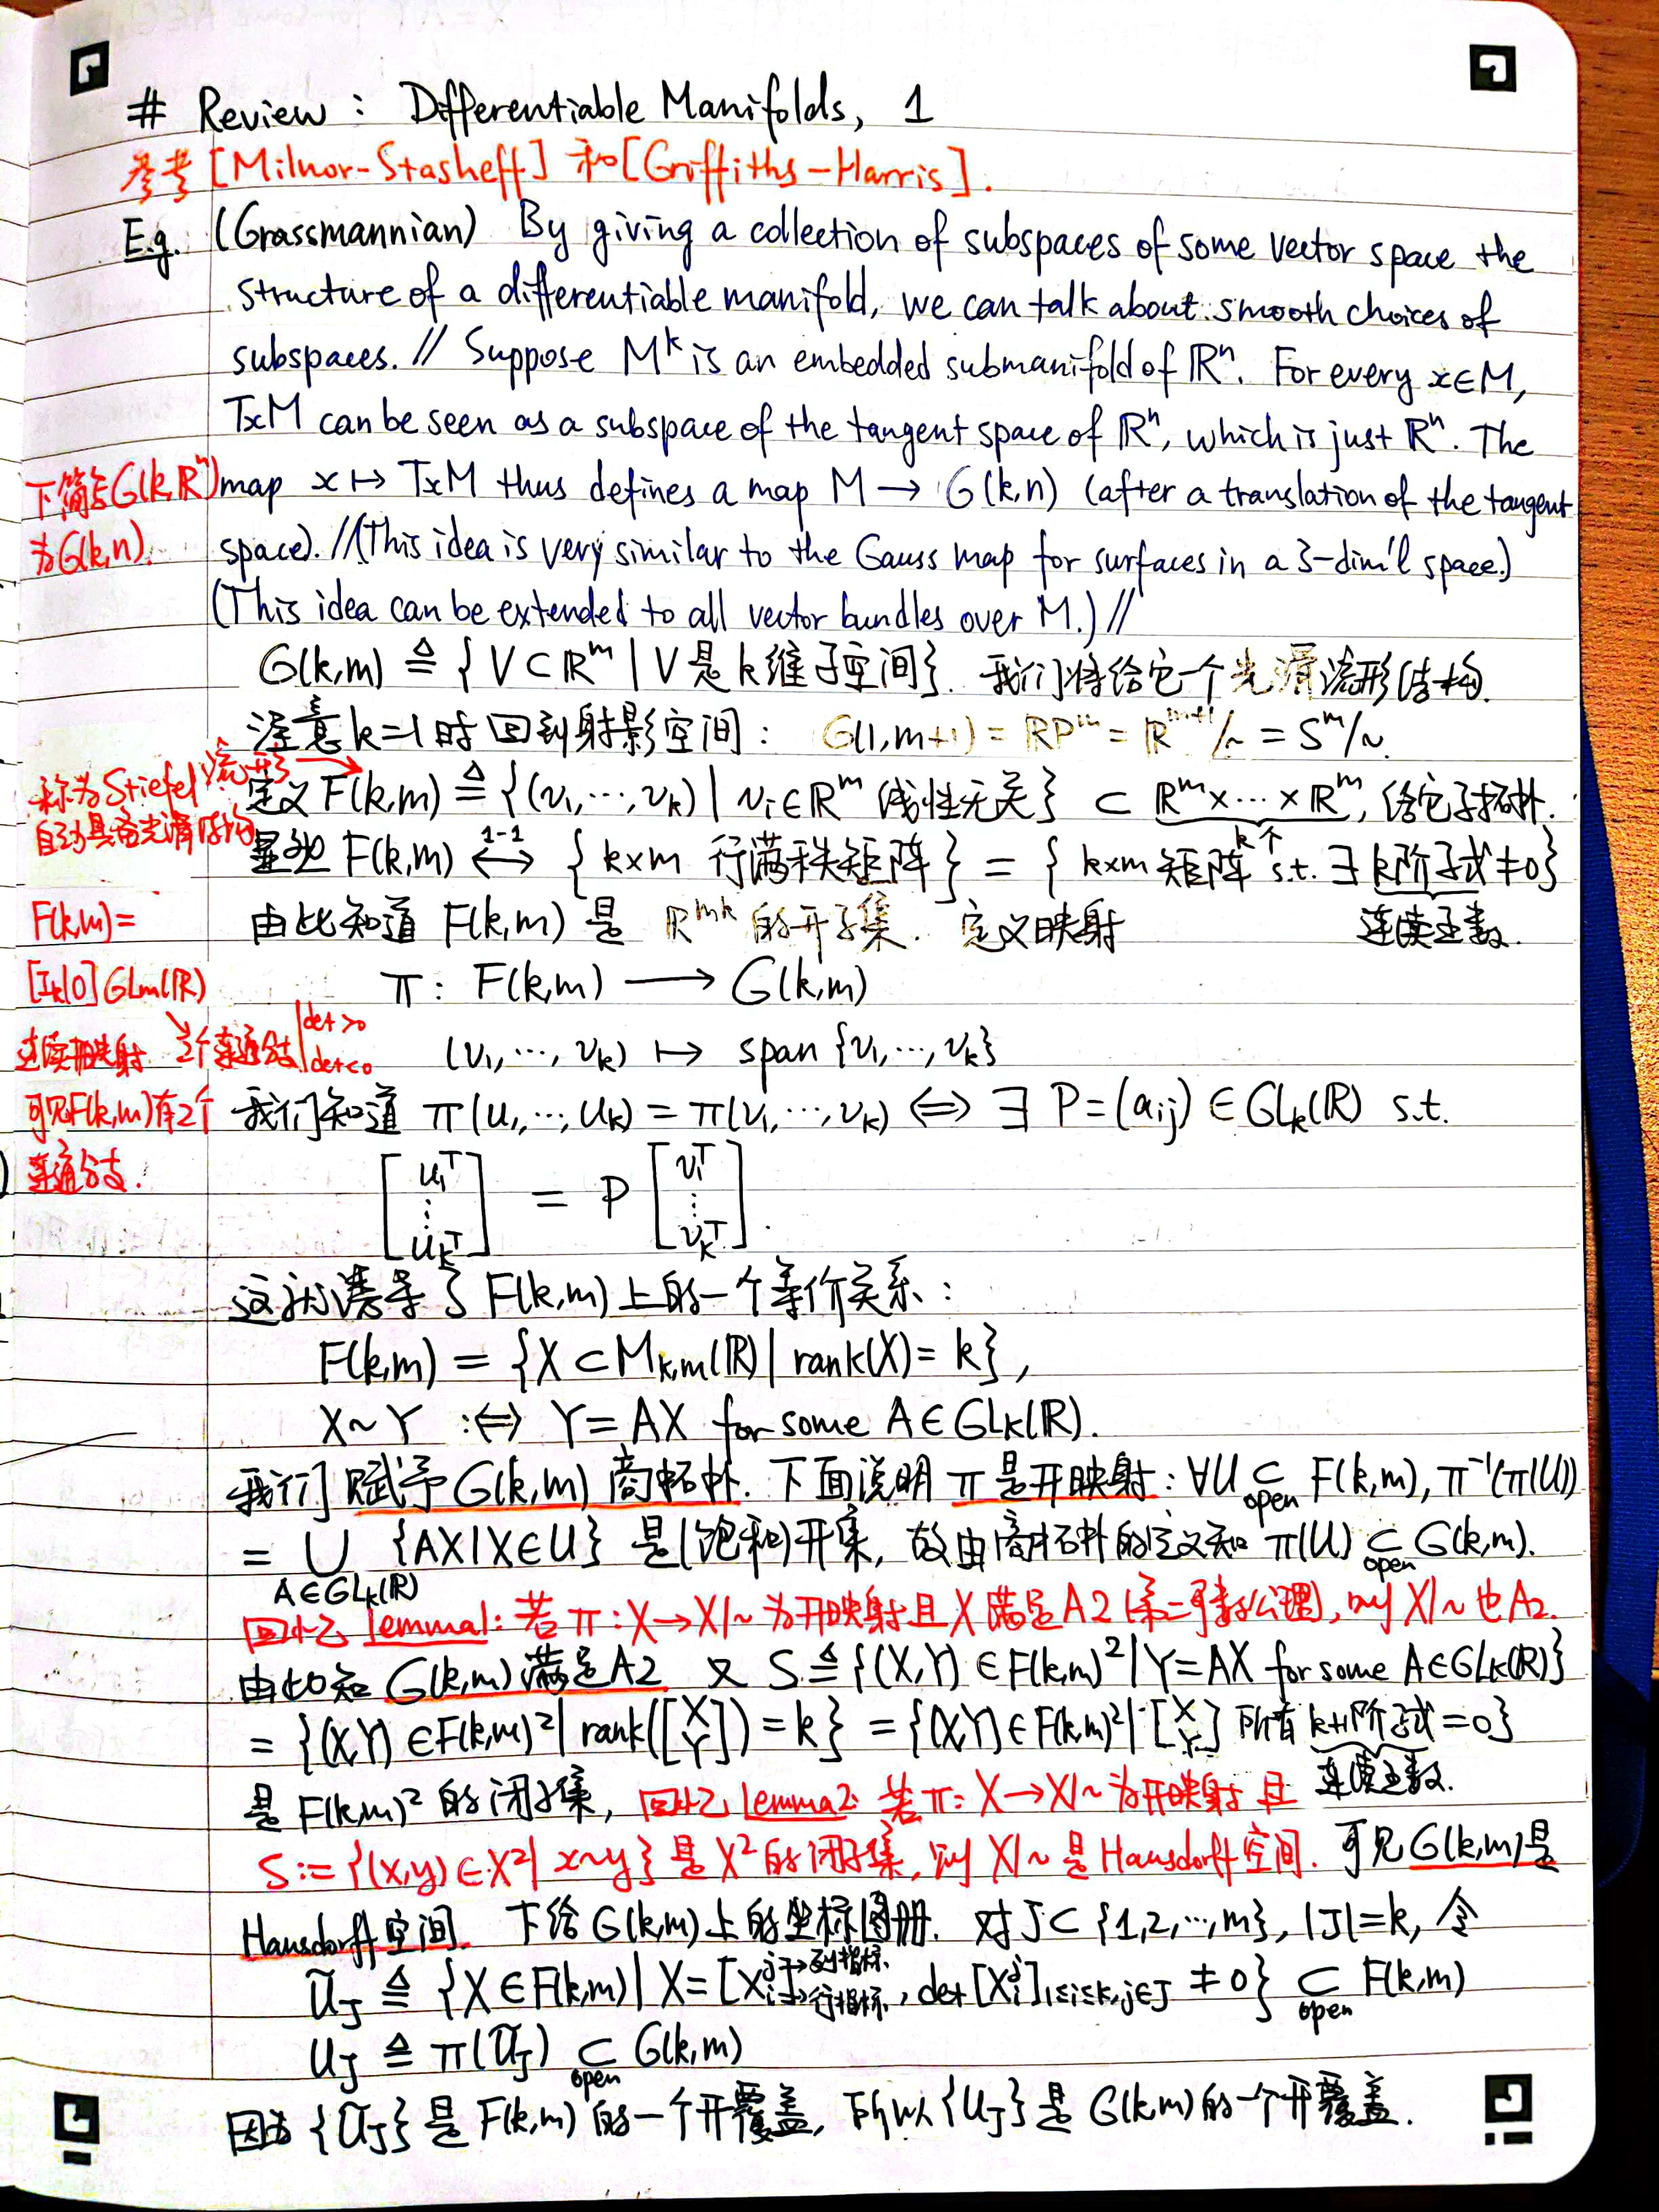 # Review : Differentiable Manifolds, 1
参考 [Milnor-Stasheff] 和 [Griffiths-Harris].
E.g. (Grassmannian) By giving a collection of subspaces of some vector space the
structure of a differentiable manifold, we can talk about smooth choices of
subspaces. // Suppose M^k is an embedded submanifold of ℝ^n. For every x∈M,
TxM can be seen as a subspace of the tangent space of ℝ^n, which is just ℝ^n. The
下简写G(k,ℝ^n)
为G(k,n).
map x ↦ TxM thus defines a map M → G(k,n) (after a translation of the tangent
space). // (This idea is very similar to the Gauss map for surfaces in a 3-dim'l space.)
(This idea can be extended to all vector bundles over M.) //
G(k,m) ≜ {V⊂ℝ^m | V是k维子空间}. 我们将给它一个光滑流形结构.
注意k=1时回到射影空间: G(1,m+1) = ℝP^m = ℝ^{m+1}/~ = S^m/~.
称为Stiefel流形 →
自动具备光滑结构
定义 F(k,m) ≜ {(v₁,⋯,v_k) | v_i∈ℝ^m 线性无关} ⊂ ℝ^m×⋯×ℝ^m, 给它子拓扑.
k个
显然 F(k,m) ⟷^{1-1} {k×m 行满秩矩阵} = {k×m 矩阵 s.t. ∃ k阶子式≠0}
连续函数.
由此知道 F(k,m) 是 ℝ^{mk} 的开子集. 定义映射
F(k,m)=
[I_k|0] GL_m(ℝ)
连续开映射 ↘ 2个连通分支 | det>0 det<0
可见F(k,m)有2个
连通分支.
π : F(k,m) ⟶ G(k,m)
(v₁,⋯,v_k) ↦ span{v₁,⋯,v_k}
我们知道 π(u₁,⋯,u_k) = π(v₁,⋯,v_k) ⟺ ∃ P=(a_ij) ∈ GL_k(ℝ) s.t.
[u₁^T ⋮ u_k^T] = P [v₁^T ⋮ v_k^T].
这就诱导了 F(k,m) 上的一个等价关系 :
F(k,m) = {X ⊂ M_{k,m}(ℝ) | rank(X) = k},
X~Y :⟺ Y=AX for some A∈GL_k(ℝ).
我们赋予 G(k,m) 商拓扑. 下面说明 π 是开映射 : ∀U ⊂_open F(k,m), π^{-1}(π(U))
= ∪_{A∈GL_k(ℝ)} {AX | X∈U} 是(饱和)开集, 故由商拓扑的定义知 π(U) ⊂_open G(k,m).
回忆 Lemma1: 若 π : X→X/~ 为开映射且 X 满足A2 (第二可数公理), 则 X/~ 也A2.
由此知 G(k,m) 满足A2. 又 S ≜ {(X,Y) ∈F(k,m)² | Y=AX for some A∈GL_k(ℝ)}
= {(X,Y) ∈F(k,m)² | rank([X Y]) = k} = {(X,Y) ∈ F(k,m)² | [X Y] 所有 k+1阶子式=0}
连续函数.
是 F(k,m)² 的闭子集, 回忆 Lemma2: 若 π: X→X/~ 为开映射 且
S := {(x,y) ∈ X² | x~y} 是 X² 的闭子集, 则 X/~ 是 Hausdorff 空间. 可见 G(k,m) 是
Hausdorff空间. 下给 G(k,m) 上的坐标图册. 对 J⊂{1,2,⋯,m}, |J|=k, 令
Ũ_J ≜ {X∈F(k,m) | X=[X_i^j], j→列指标 i→行指标, det[X_i^j]_{1≤i≤k, j∈J} ≠ 0} ⊂_open F(k,m)
U_J ≜ π(Ũ_J) ⊂_open G(k,m)
因为 {Ũ_J} 是 F(k,m) 的一个开覆盖, 所以 {U_J} 是 G(k,m) 的一个开覆盖.